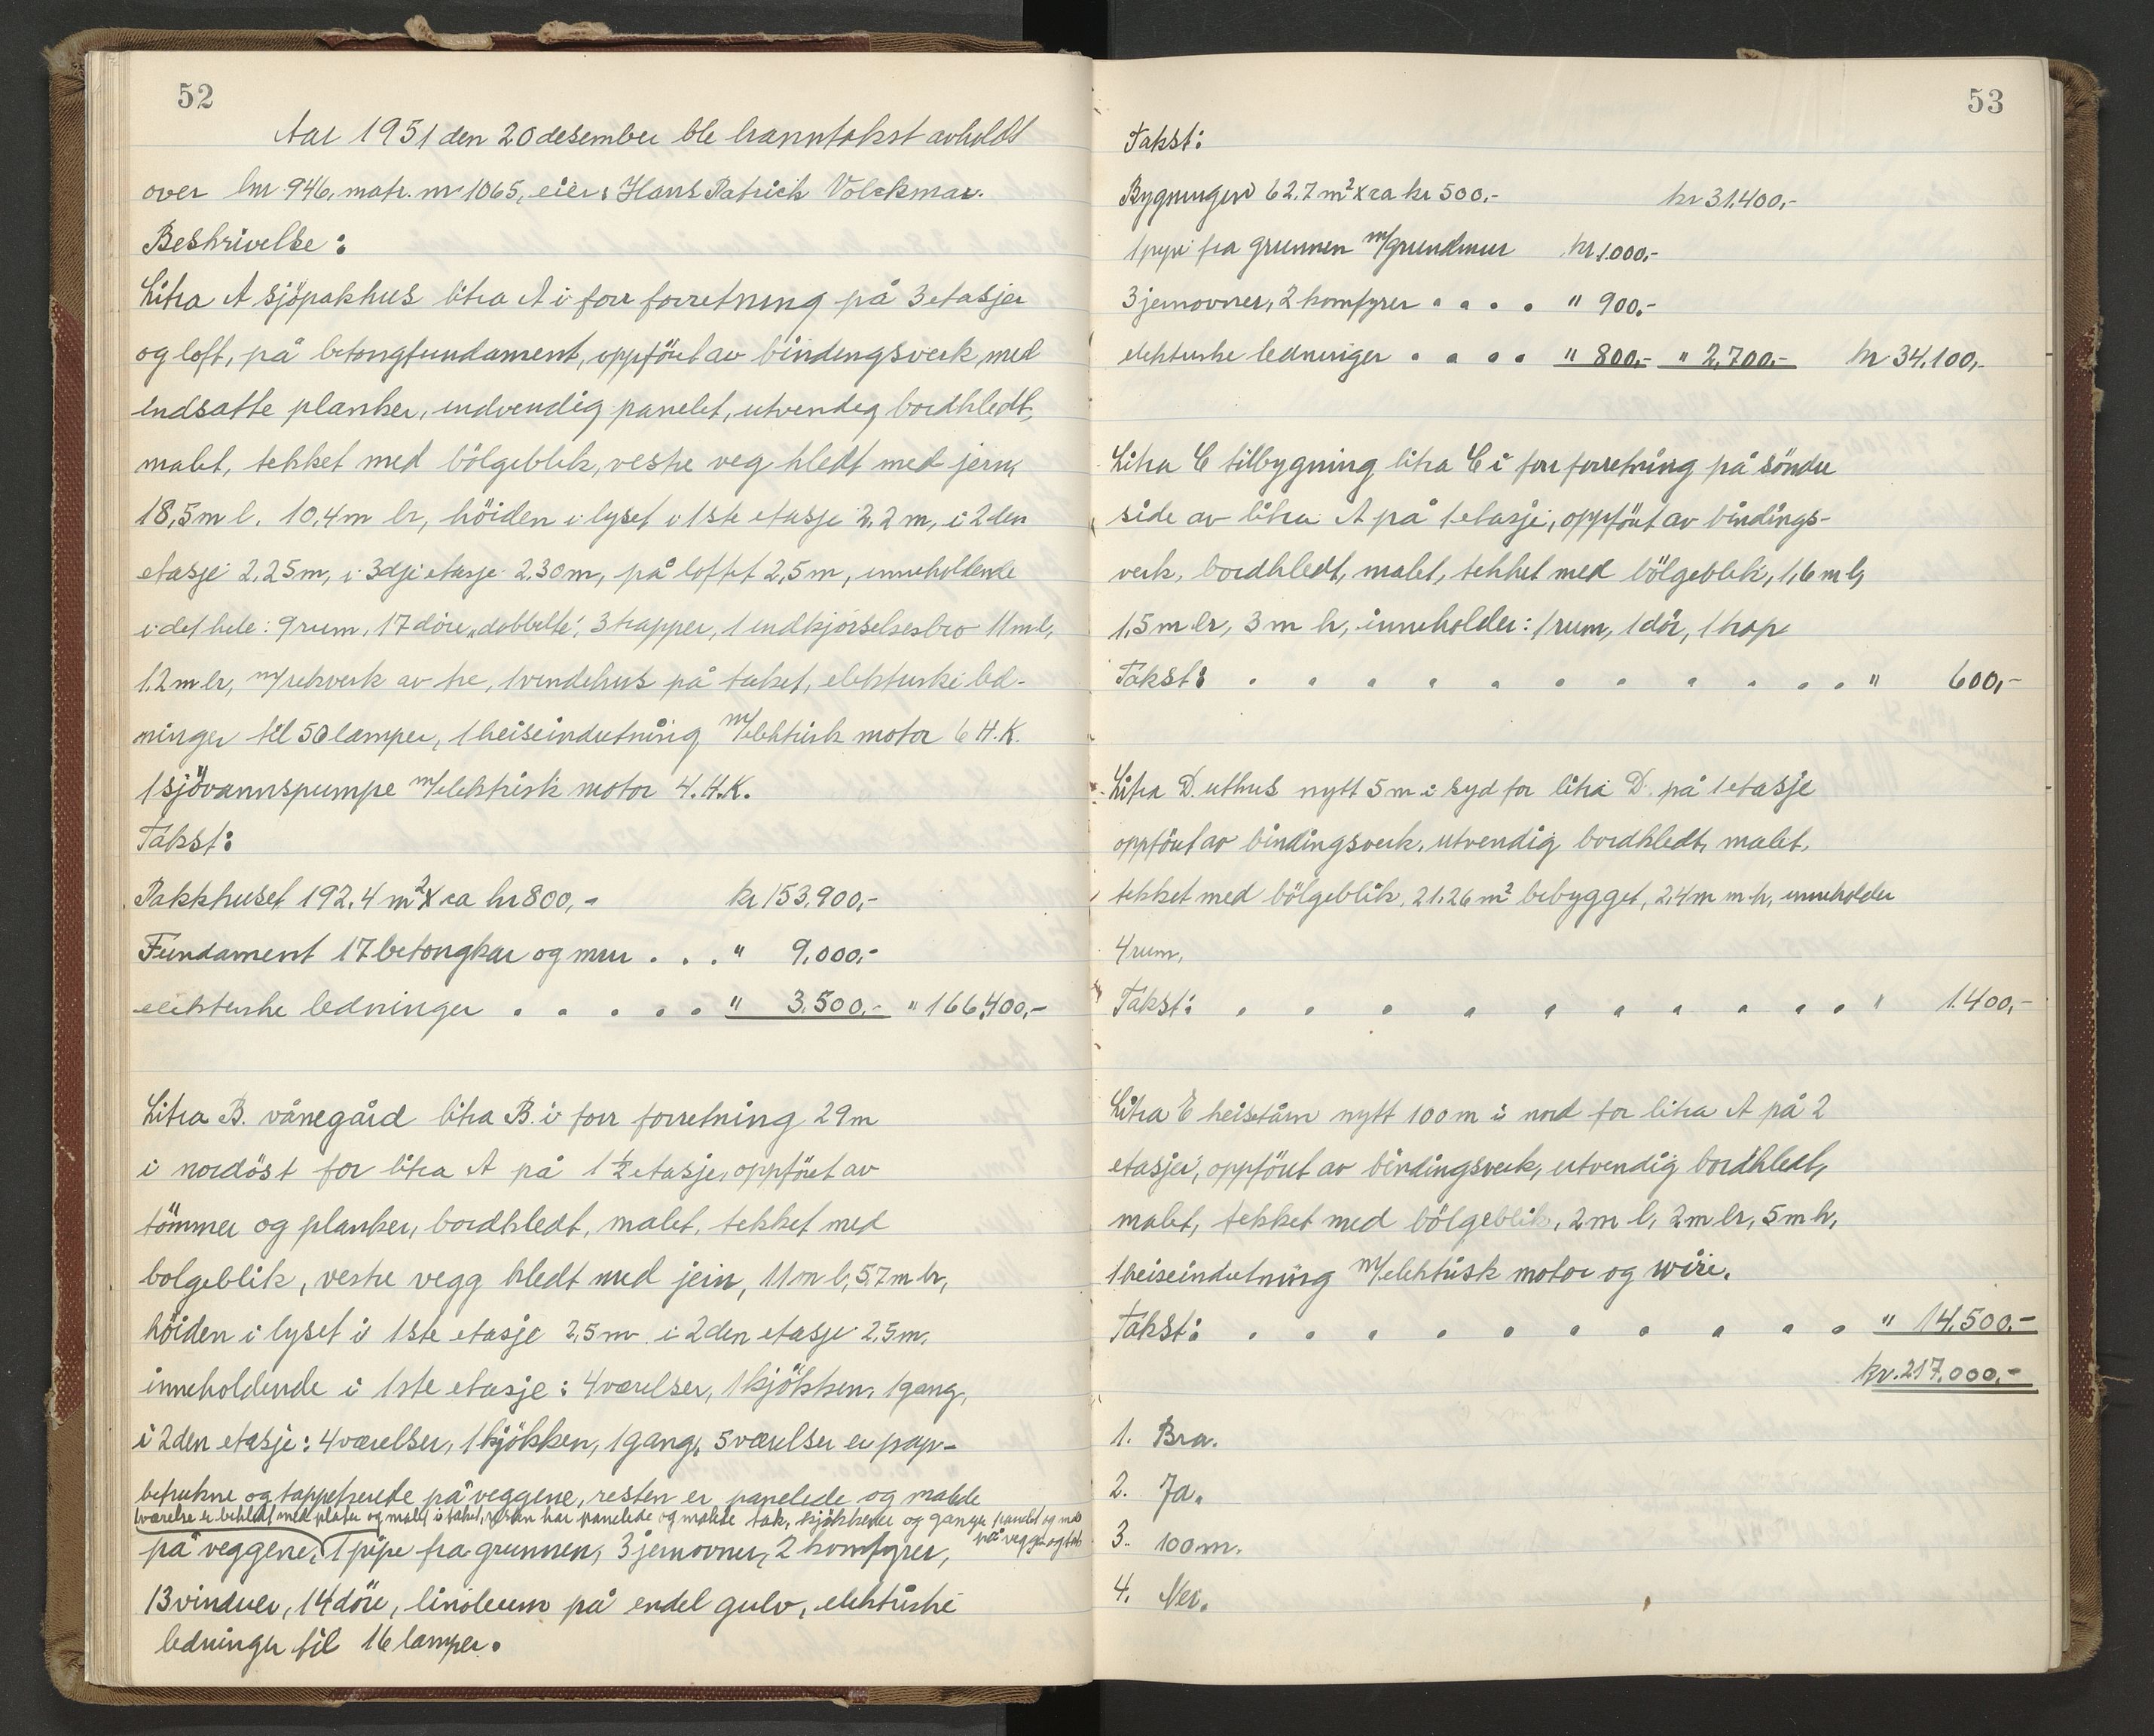 52
Aar 1951 den 20 desember ble branntakst avholdt
over bnr. 946, matr. nr 1065, eier: Hans Patrick Volckmar.
Beskrivelse:
Litra A sjöpakhus litra A i forr forretning på 3 etasjer
og loft, på betongfundament, oppföret av bindingsverk, med
indsatte planker, indvendig panelet, utvendig bordkledt,
malet, tekket med bölgeblik, vestre veg kledt med jern,
18,5 m l. 10,4 m br, höiden i lyset i 1ste etasje 2,2 m, i 2den
etasje 2,25 m, i 3dje etasje 2,30 m, på loftet 2,5 m, inneholdende
i det hele: 9 rum, 17 döre „dobbelte", 3 trapper, 1 indkjörselsesbro 11 m l,
1.2 m br, m/rekverk av tre, 1 vindehus på taket, elektriske led-
ninger til 50 lamper, 1 heiseindretning m/elektrisk motor 6 H.K.
1 sjövannspumpe m/elektrisk motor 4. H.K.
Takst:
Pakkhuset 192.4 m² x ca kr 800,- kr 153.900,-
Fundament 17 betongkar og mur . . . " 9.000,-
elektriske ledninger . . . . . " 3.500,- " 166.400,-
Litra B. vånegård litra B. i forr forretning 29 m
i nordöst for litra A på 1 ½ etasje, oppföret av
tömmer og planker, bordkledt, malet, tekket med
bolgeblik, vestre vegg kledt med jern, 11 m l, 5,7 m br,
höiden i lyset i 1ste etasje 2,5 m i 2den etasje 2,5 m,
inneholdende i 1ste etasje: 4 værelser, 1 kjökken, 1 gang,
i 2den etasje: 4 værelser, 1 kjökken, 1 gang, 5 værelser er pap-
betrukne og tappetserede på veggene, resten er panelede og malede
1 værelse er beklædt med plater og malet i taket, resten har panelede og malede tak, kjökkener og ganger panelet og mal
på vegger og tak
på veggene, 1 pipe fra grunnen, 3 jernovner, 2 komfyrer,
13 vinduer, 14 döre, linoleum på endel gulv, elektriske
ledninger til 16 lamper.
53
Takst:
Bygningen 62.7 m² x ca kr 500,- kr 31.400,-
1 pipe fra grunnen m/grundmur kr 1.000,-
3 jernovner, 2 komfyrer . . . . " 900,-
elektriske ledninger . . . . " 800,- " 2.700,- kr 34.100,-
Litra C tilbygning litra C i forr forretning på söndre
side av litra A på 1 etasje, oppfört av bindings-
verk, bordkledt, malet, tekket med bölgeblik, 1,6 m l,
1,5 m br, 3 m h, inneholder: 1 rum, 1 dör, 1 trap
Takst: . . . . . . . . . . . . " 600,-
Litra D. uthus nytt 5 m i syd for litra D. på 1 etasje
oppföret av bindingsverk, utvendig bordkledt, malet,
tekket med bölgeblik, 21.26 m² bebygget, 2,4 m m.h, inneholder
4 rum,
Takst: . . . . . . . . . . . " 1.400,-
Litra E heisetårn nytt 100 m i nord for litra A på 2
etasjer, oppfört av bindingsverk, utvendig bordkledt,
malet, tekket med bölgeblik, 2 m l, 2 m br, 5 m h,
1 heiseindretning m/elektrisk motor og wire.
Takst: . . . . . . . . . . . " 14.500,-
kr. 217.000,-
1. Bra.
2. Ja.
3. 100 m.
4. Nei.